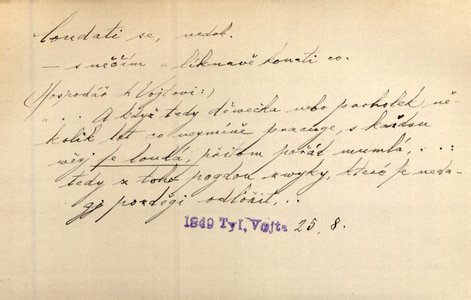 loudati se, nedok.
— s něčím = liknavě konati co.
(Hospodář k Vojtovi:)
"... A když tedy děwečka nebo pacholek ně-
kolik let co neymíně pracuge, s každau
wěcj je laudá, přitom pořád mumlá, ...:
tedy z toho pogdau zwyky, které se neda-
gj pozděgi odložit...
1849 Tyl, Vojta 25, 8.